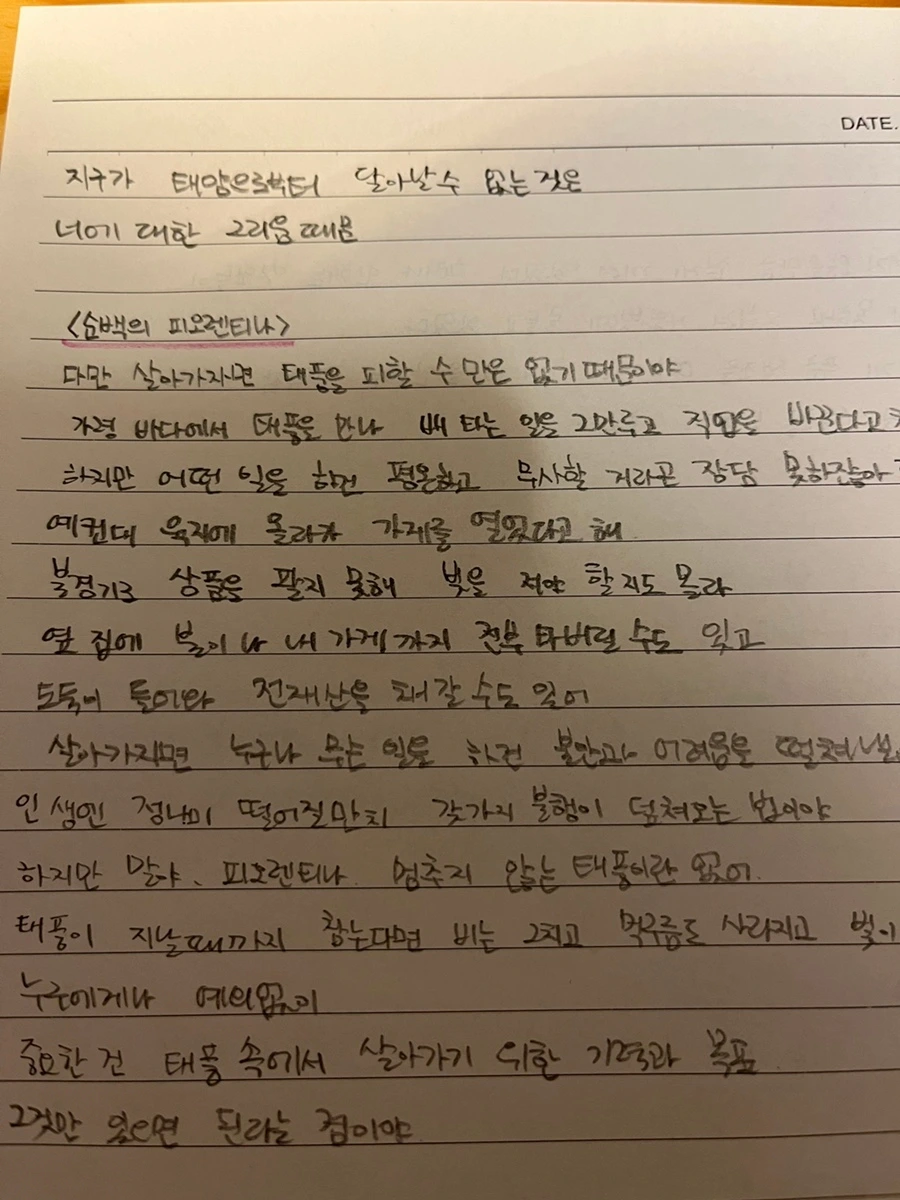 DATE.
지구가 태양으로부터 달아날 수 없는 것은
너에 대한 그리움 때문
<순백의 피오렌티나>
다만 살아가자면 태풍을 피할 수 만은 없기 때문이야
가령 바다에서 태풍을 만나 배 타는 일을 그만두고 직업을 바꾼다고
하지만 어떤 일을 하건 평온하고 무사할 거라곤 장담 못하잖아
예컨대 육지에 올라가 가게를 열었다고 해
불경기로 상품을 팔지 못해 빚을 져야 할지도 몰라
옆 집에 불이 나 내 가게까지 전부 타버릴 수도 있고
도둑이 들어와 전재산을 훼갈 수도 있어
살아가자면 누구나 무슨 일을 하건 불안과 어려움을 떨쳐낼
인생엔 정나미 떨어질만치 갖가지 불행이 덮쳐오는 법이야
하지만 말야, 피오렌티나. 멈추지 않는 태풍이란 없어.
태풍이 지날때까지 참는다면 비는 그치고 먹구름도 사라지고 빛이
누구에게나 예외없이
중요한 건 태풍 속에서 살아가기 위한 기력과 목표
그것만 있으면 된라는 점이야